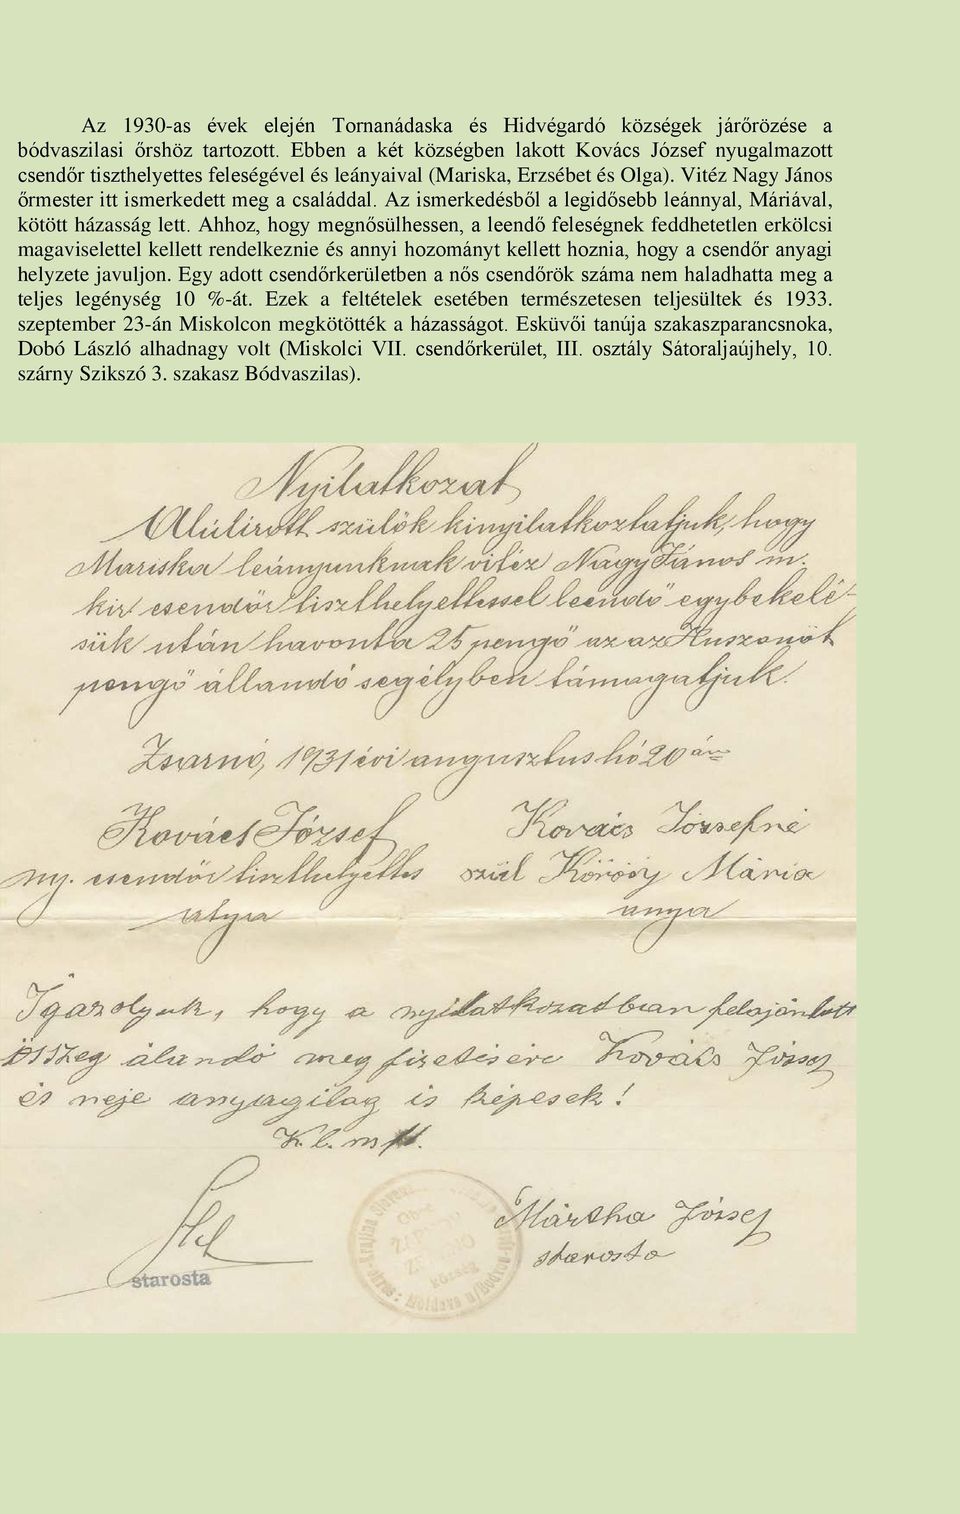 Az 1930-as évek elején Tornanádaska és Hidvégardó községek járőrözése a
bódvaszilasi őrshöz tartozott. Ebben a két községben lakott Kovács József nyugalmazott
csendőr tiszthelyettes feleségével és leányaival (Mariska, Erzsébet és Olga). Vitéz Nagy János
őrmester itt ismerkedett meg a családdal. Az ismerkedésből a legidősebb leánnyal, Máriával,
kötött házasság lett. Ahhoz, hogy megnősülhessen, a leendő feleségnek feddhetetlen erkölcsi
magaviselettel kellett rendelkeznie és annyi hozományt kellett hoznia, hogy a csendőr anyagi
helyzete javuljon. Egy adott csendőrkerületben a nős csendőrök száma nem haladhatta meg a
teljes legénység 10 %-át. Ezek a feltételek esetében természetesen teljesültek és 1933.
szeptember 23-án Miskolcon megkötötték a házasságot. Esküvői tanúja szakaszparancsnoka,
Dobó László alhadnagy volt (Miskolci VII. csendőrkerület, III. osztály Sátoraljaújhely, 10.
szárny Szikszó 3. szakasz Bódvaszilas).
Nyilatkozat
Alúlírott szülök kinyilatkoztatjuk, hogy
Mariska leányunknak vitéz Nagy János m.
kir csendőr tiszthelyettessel leendő egybekelé-
sük után havonta 25 pengő azaz Huszonöt
pengő állandó segélyben támogatjuk.
Zsarnó, 1931 évi augusztus hó 20 án
Kovács József Kovács Józsefné
ny. csendőr tiszthelyettes szül Kőrösy Mária
atyja anya
Igazolyuk, hogy a nyilatkozatban felajánlott
összeg álandó meg fizetésére Kovács József
és neje anyagilag is képesek!
K. l. mft.
Mártha József
starosta
starosta
község